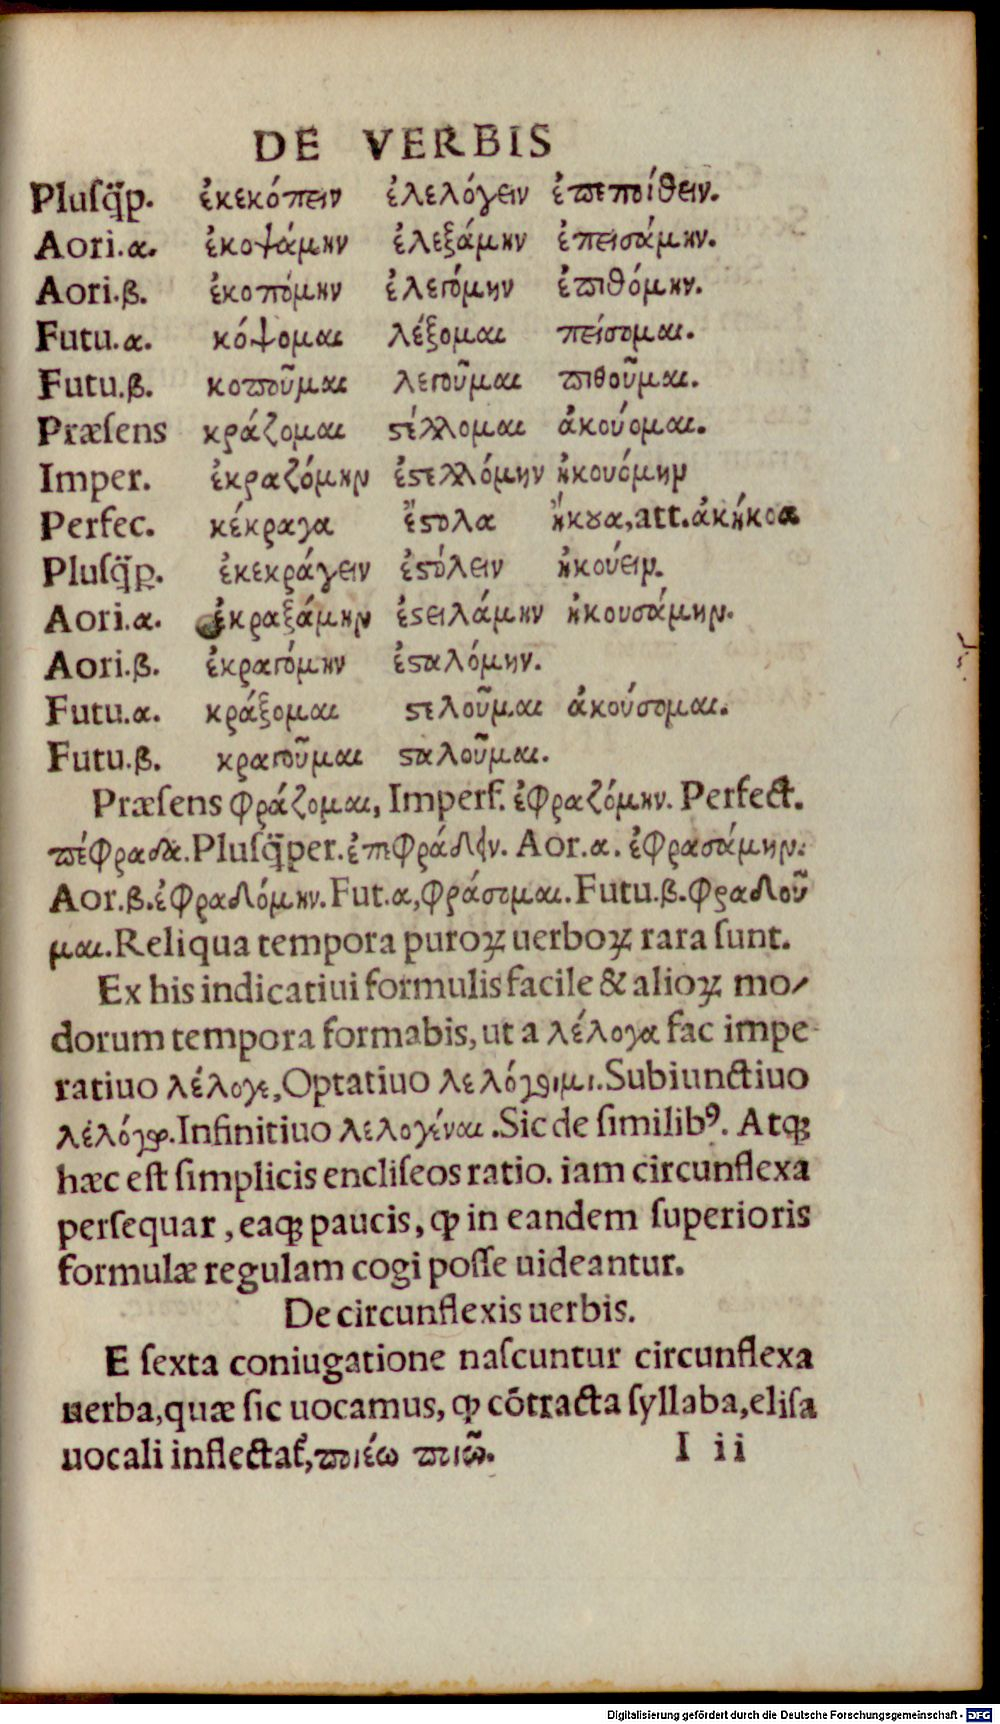 DE VERBIS
Pluſq̃p. ἐκεκόπειν ἐλελόγειν ἐπεποίθειν.
Aori.α. ἐκοψάμην ἐλεξάμην ἐπεισάμην.
Aori.β. ἐκοπόμην ἐλεγόμην ἐπιθόμην.
Futu.α. κόψομαι λέξομαι πείσομαι.
Futu.β. κοποῦμαι λεγοῦμαι πιθοῦμαι.
Præſens κράζομαι ϛέλλομαι ἀκούομαι.
Imper. ἐκραζόμην ἐϛελλόμην ἠκουόμην
Perfec. κέκραγα ἔϛολα ἤκȣα, att. ἀκήκοα
Pluſq̃p. ἐκεκράγειν ἐϛόλειν ἠκούειν.
Aori.α. ἐκραξάμην ἐϛειλάμην ἠκουσάμην.
Aori.β. ἐκραγόμην ἐϛαλόμην.
Futu.α. κράξομαι ϛελοῦμαι ἀκούσομαι.
Futu.β. κραγοῦμαι ϛαλοῦμαι.
Præſens φράζομαι, Imperf. ἐφραζόμην. Perfect.
πέφραδα. Pluſq̃per. ἐπεφράδειν. Aor.α. ἐφρασάμην.
Aor.β. ἐφραδόμην. Fut.α, φράσομαι. Futu.β. φραδοῦ
μαι. Reliqua tempora puroꝝ uerboꝝ rara ſunt.
Ex his indicatiui formulis facile & alioꝝ mo-
dorum tempora formabis, ut a λέλογα fac impe
ratiuo λέλογε, Optatiuo λελόγοιμι. Subiunctiuo
λελόγω. Infinitiuo λελογέναι. Sic de ſimilibꝰ. Atqꝫ
hæc eſt ſimplicis encliſeos ratio. iam circunflexa
perſequar, eaqꝫ paucis, ꝙ in eandem ſuperioris
formulæ regulam cogi poſſe uideantur.
De circunflexis uerbis.
E ſexta coniugatione naſcuntur circunflexa
uerba, quæ ſic uocamus, ꝙ cõtracta ſyllaba, eliſa
uocali inflectat᷑, ποιέω ποιῶ. I ii
Digitalisierung gefördert durch die Deutsche Forschungsgemeinschaft - DFG